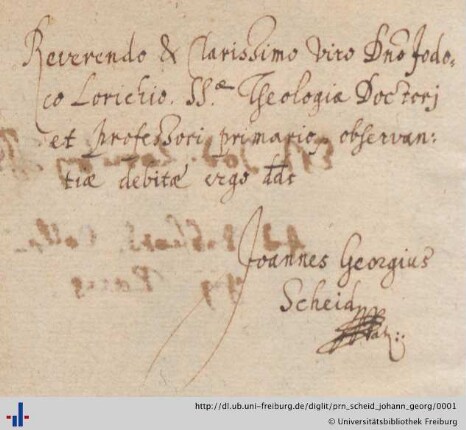 Reverendo & Clarissimo viro Dno Jodo-
co Lorichio. SS.æ Theologiæ Doctorj
et professori primario, observan:
tiæ debitæ ergo ddt
Joannes Georgius
Scheid
http://dl.ub.uni-freiburg.de/diglit/prn_scheid_johann_georg/0001
© Universitätsbibliothek Freiburg